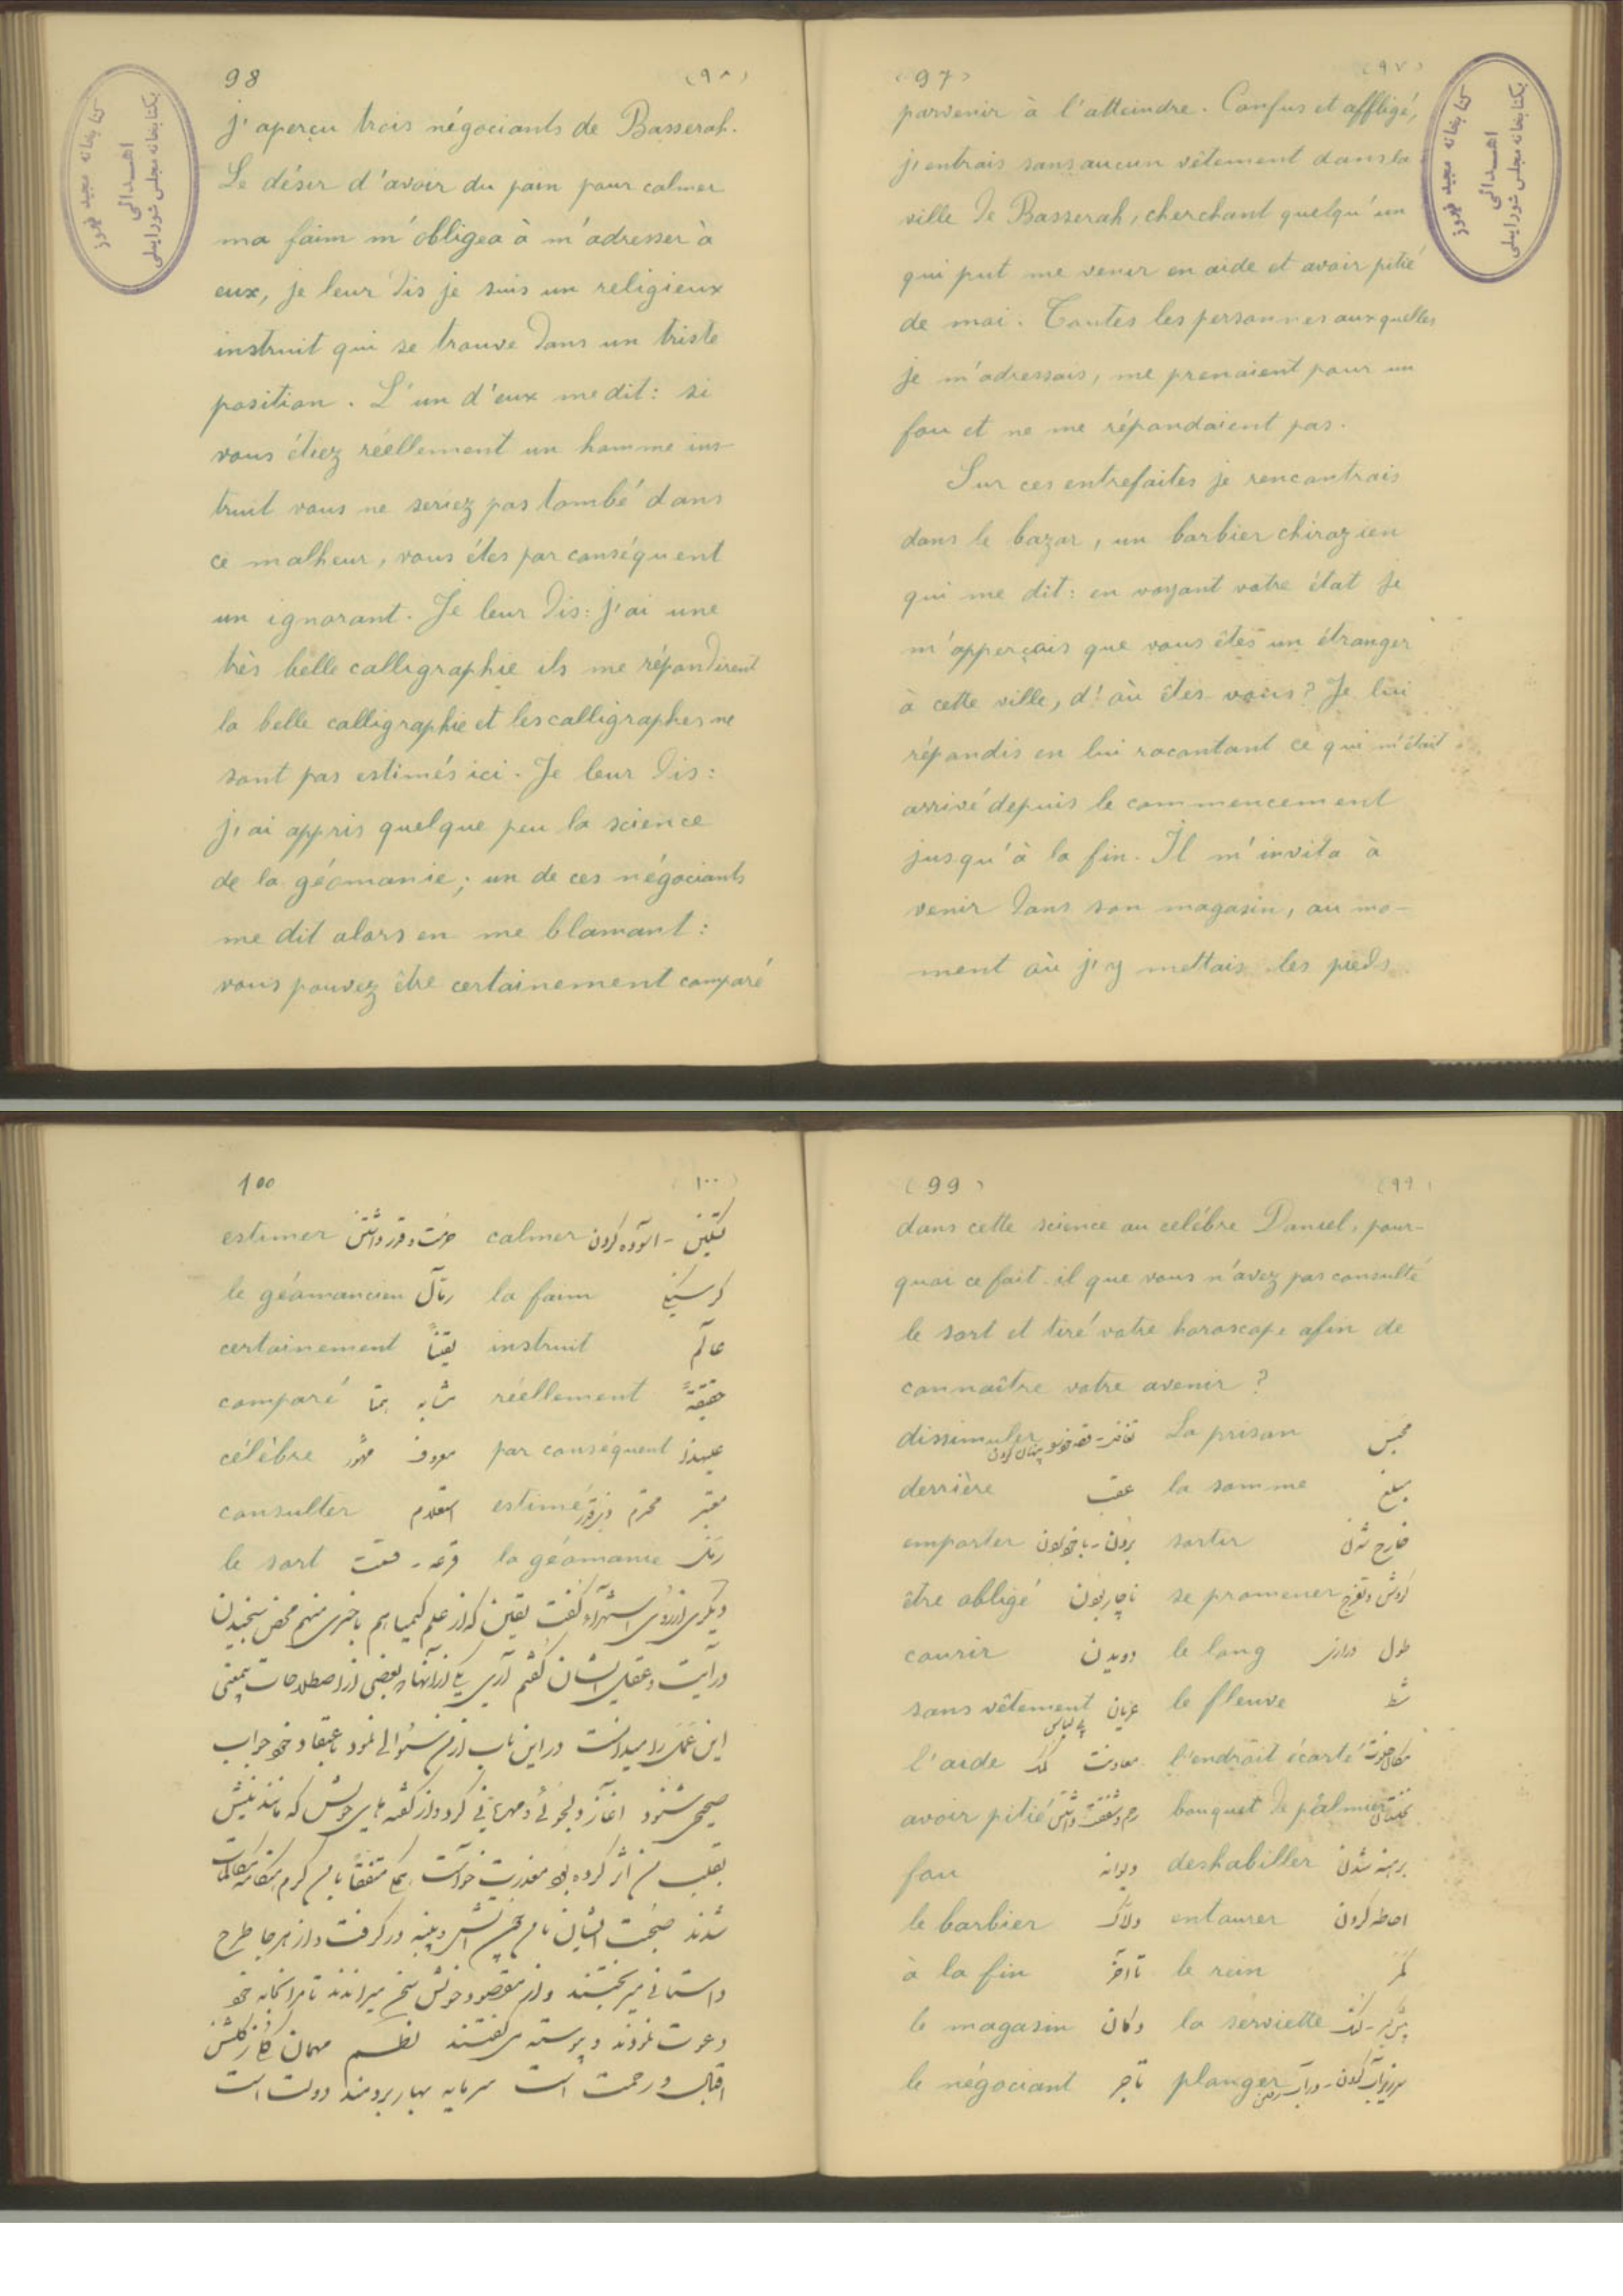 (97) (۹۷)
parvenir à l'atteindre. Confus et affligé,
j'entrais sans aucun vêtement dans la
ville de Basserah, cherchant quelqu'un
qui put me venir en aide et avoir pitié
de moi. Toutes les personnes auxquelles
je m'adressais, me prenaient pour un
fou et ne me répondaient pas.
Sur ces entrefaites je rencontrais
dans le bazar, un barbier chirazien
qui me dit: en voyant votre état je
m'apperçois que vous êtes un étranger
à cette ville, d'où êtes vous? Je lui
répondis en lui racontant ce qui m'était
arrivé depuis le commencement
jusqu'à la fin. Il m'invita à
venir dans son magasin, au mo-
ment où j'y mettais les pieds
98 (۹۸)
j'aperçu trois négociants de Basserah.
Le désir d'avoir du pain pour calmer
ma faim m'obligea à m'adresser à
eux, je leur dis je suis un religieux
instruit qui se trouve dans un triste
position. L'un d'eux me dit: si
vous étiez réellement un homme ins-
truit vous ne seriez pas tombé dans
ce malheur, vous êtes par conséquent
un ignorant. Je leur dis: j'ai une
très belle calligraphie ils me répondirent
la belle calligraphie et les calligraphes ne
sont pas estimés ici. Je leur dis:
j'ai appris quelque peu la science
de la géomanie; un de ces négociants
me dit alors en me blamant:
vous pouvez être certainement comparé
کتابخانه مجید فیروز
اهدائی
بکتابخانه مجلس شورایملی
(99) (۹۹)
dans cette science au célébre Daniel, pour-
quoi ce fait-il que vous n'avez pas consulté
le sort et tiré votre horoscope afin de
connaître votre avenir?
dissimuler پنهان کردن La prison محبس
derrière عقب la somme مبلغ
emporter بردن - با خود بردن sortir خارج شدن
être obligé ناچار بودن se promener گردش و تفرج
courir دویدن le long طول درازی
sans vêtement عریان بی لباس le fleuve شط
l'aide معاونت کمک l'endroit écarté مکان خلوت
avoir pitié رحم و شفقت داشتن bouquet de palmier نخلستان
fou دیوانه deshabiller برهنه شدن
le barbier دلاک entourer احاطه کردن
à la fin تا آخر le rein کمر
le magasin دکان la serviette لنگ
le négociant تاجر plonger
100 (۱۰۰)
estimer حرمت و قدر داشتن calmer تسکین - آسوده کردن
le géomancien رمّال la faim گرسنگی
certainement یقیناً instruit عالم
comparé مشابه همتا réellement حقیقةً
célèbre معروف مشهور par conséquent علیهذا
consulter استعلام estimé معتبر محترم
le sort قرعه - قسمت la géomanie رمل
دیگری از روی استهزاء گفت یقین که از علم کیمیا هم باخبری منهم محض سنجیدن
درایت و عقل ایشان گفتم آری یکی از آنها که بعضی از اصطلاحات
این عمل را میدانست در این باب از من سئوالی نمود باعتقاد خود جواب
صحیح شنود آغاز دلجوئی و مهربانی کرد و از گفته های خویش که مانند نیش
بقلب من اثر کرده بود معذرت خواست
شدند صحبت ایشان با من چون آتش و پنبه در گرفت و از هر جا طرح
داستانی میریختند و از مقصود خویش سخن میراندند تا مرا بخانه خود
دعوت نمودند و پیوسته می گفتند نظم مهمان گلی ز گلشن
اقبال و رحمت است سرمایه بهار برومند دولت است